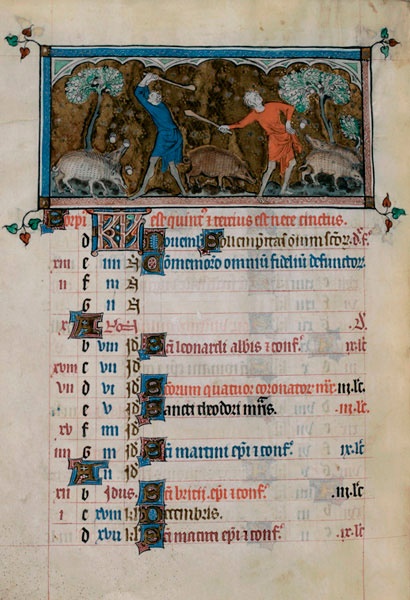 Scorpi est quint⁹ ⁊ tercius est nece cinctus.
d KL Novemb Sollempnitas omnium scor. d. f.
xiii e iiii N Commemoro omniū fidelium defunctor
ii f iii N
G ii N
x A Non
b viii Id Sci leonardi abbis ⁊ conf. iii lc
xviii c vii Id
vii d vi Id Scorum quatuor coronator mr. iii. lc
e v Id Sancti theodori mris. iii. lc
xv f iiii Id
iiii G iii Id Sci martini epi ⁊ conf. ix. lc
A ii Id
xii b Idus Sci bricii epi ⁊ conf. iii. lc
i c xviii kl Decembris.
d xvii kl Sci macuti epi ⁊ conf. ix. lc